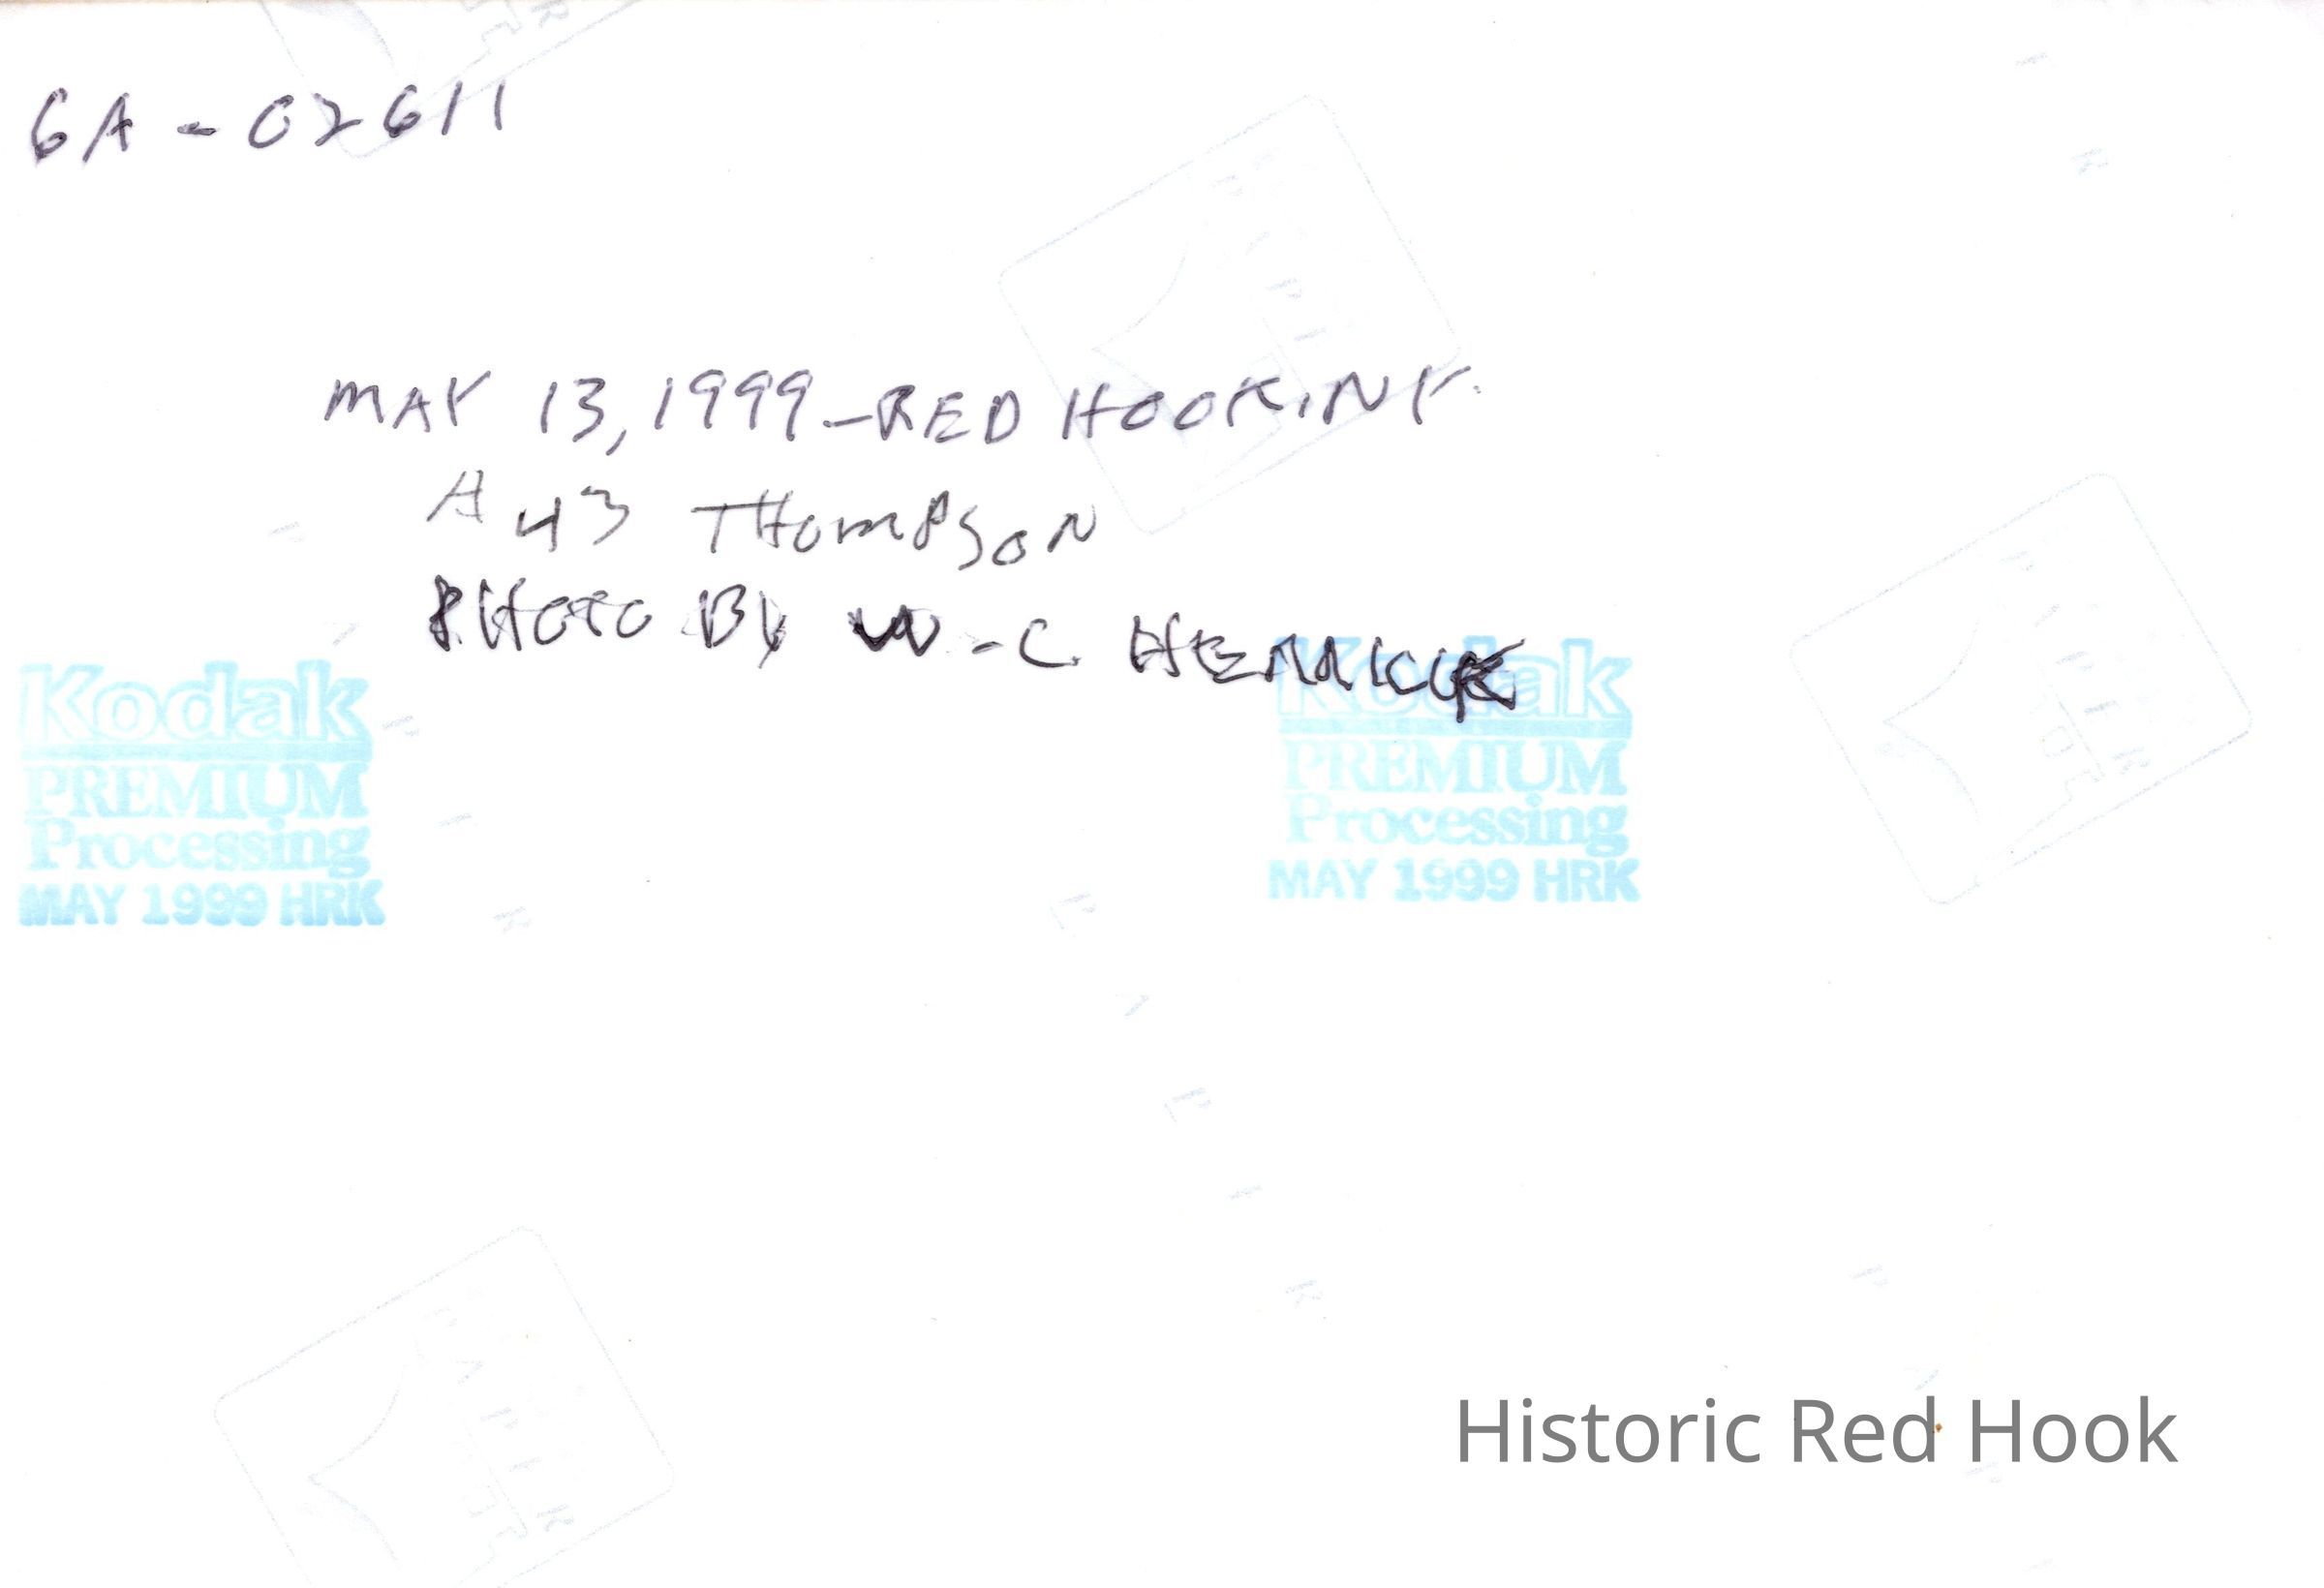 6A - 02611
MAY 13, 1999 - RED HOOK, NY.
A 43 THOMPSON
PHOTO BY W-C HERRICK
Kodak
PREMIUM
Processing
MAY 1999 HRK
Kodak
PREMIUM
Processing
MAY 1999 HRK
Historic Red Hook